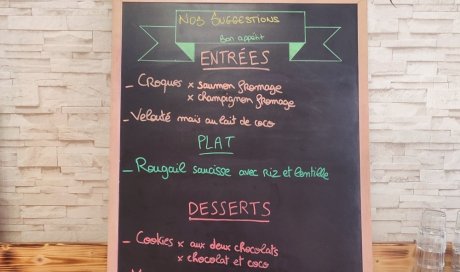 Nos Suggestions
Bon appétit
ENTRÉES
_ Croques x saumon fromage
x champignon fromage
_ Velouté maïs au lait de coco
PLAT
_ Rougail saucisse avec Riz et lentille
DESSERTS
_ Cookies x aux deux chocolats
x chocolat et coco